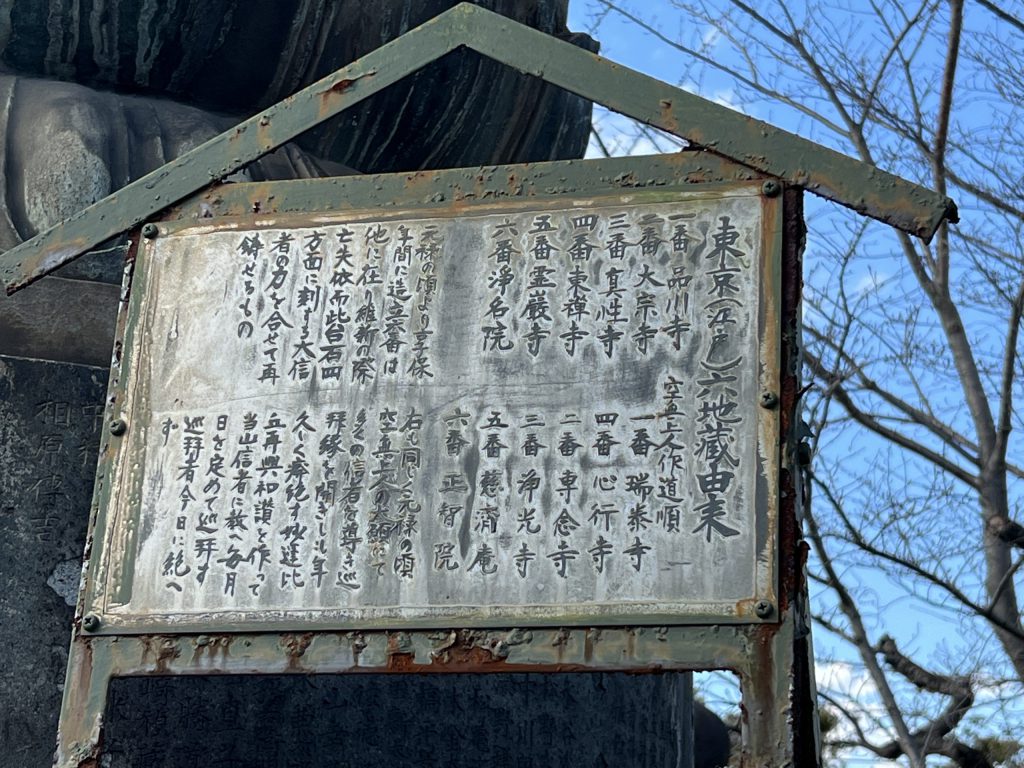 東京(江戸)六地蔵由来
一番 品川寺
二番 大宗寺
三番 真性寺
四番 東禅寺
五番 霊巌寺
六番 浄名院
元禄の頃より享保
年間に造立五番は
他に在り維新の際
亡夫依而此台石四
方面に刻する大信
者の力を合せて再
鋳せるもの
空無上人作道順
一番 瑞泰寺
四番 心行寺
二番 専念寺
三番 浄光寺
五番 慈済庵
六番 正智院
右も同じく元禄の頃
空無上人の大願にて
多くの信者を導き巡
拝縁を開きしも年
久しく廃絶す妙運比
丘再興和讃を作って
当山信者に教へ毎月
日を定めて巡拝す
巡拝者今日に絶へ
ず
相原伝吉